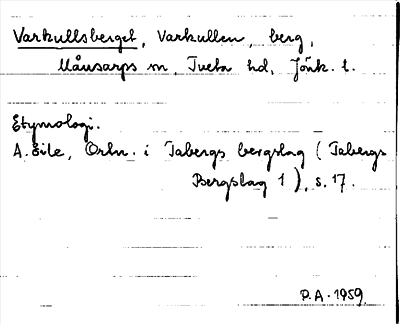 Varkullsberget, Varkullen, berg,
Månsarps sn, Tveta hd, Jönk. l.
Etymologi.
A. Eile, Ortn. i Tabergs bergslag (Tabergs
Bergslag 1), s. 17.
P.A. 1959.